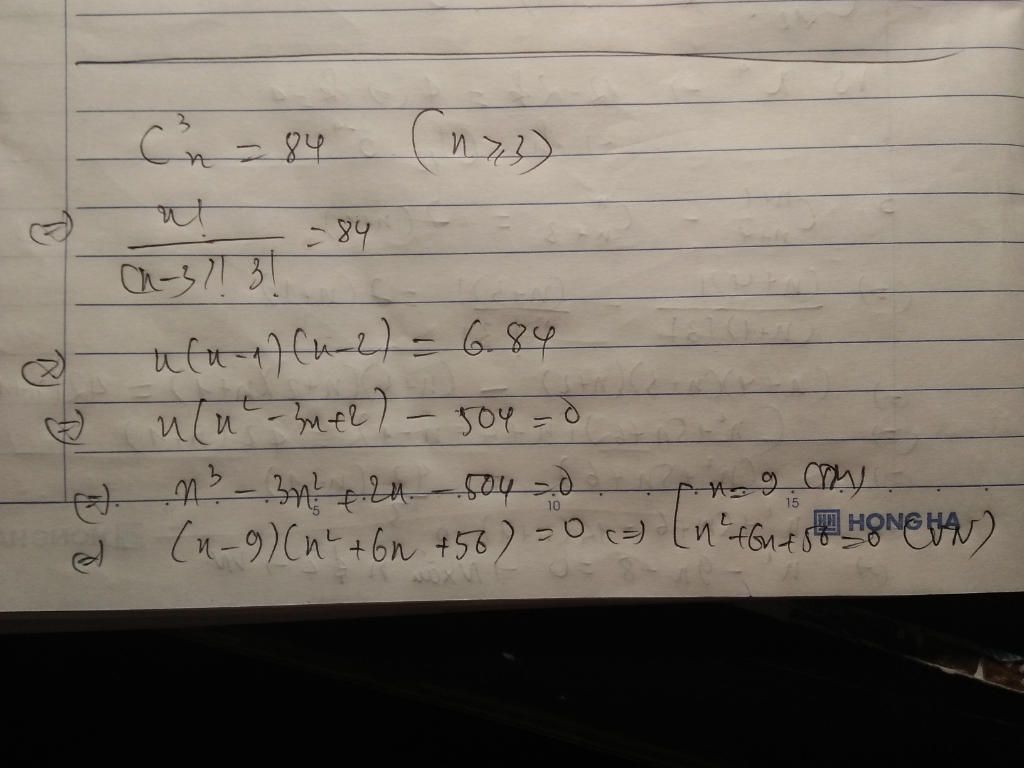 C³ₙ = 84 (n ⩾ 3)
(=) n! / (n-3)! 3! = 84
(=) n(n-1)(n-2) = 6.84
(=) n(n² - 3n+2) - 504 = 0
(=) n³ - 3n² + 2n - 504 = 0
(=) (n-9)(n² + 6n + 56) = 0 (=) [ n = 9 (TM)
n² + 6n + 56 = 0 (VN)
5 10 15
HONG HA